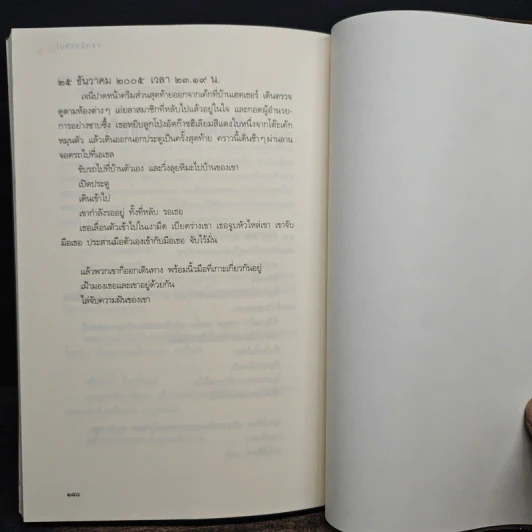 ๒๕ ธันวาคม ๒๐๐๕ เวลา ๒๓.๑๙ น.
เจนี่ปาดหน้าครีมส่วนสุดท้ายออกจากเค้กที่บ้านเฮดเชอร์ เดินตรวจ
ดูตามห้องต่างๆ เอ่ยลาสมาชิกที่หลับไปแล้วอยู่ในใจ และกอดผู้อำนวย-
การอย่างซาบซึ้ง เธอหยิบลูกโป่งอัดก๊าซฮีเลียมสีแดงใบหนึ่งจากโต๊ะเค้ก
หมุนตัว แล้วเดินออกนอกประตูเป็นครั้งสุดท้าย คราวนี้เดินช้าๆ ผ่านลาน
จอดรถไปที่เอเชล
ขับรถไปที่บ้านตัวเอง และวิ่งลุยหิมะไปบ้านของเขา
เปิดประตู
เดินเข้าไป
เขากำลังรออยู่ ทั้งที่หลับ รอเธอ
เธอเลื่อนตัวเข้าไปในเงามืด เบียดร่างเขา เธอจูบหัวไหล่เขา เขาจับ
มือเธอ ประสานมือตัวเองเข้ากับมือเธอ จับไว้มั่น
แล้วพวกเขาก็ออกเดินทาง พร้อมนิ้วมือที่เกาะเกี่ยวกันอยู่
เฝ้ามองเธอและเขาอยู่ด้วยกัน
ไล่จับความฝันของเขา
๒๘๐